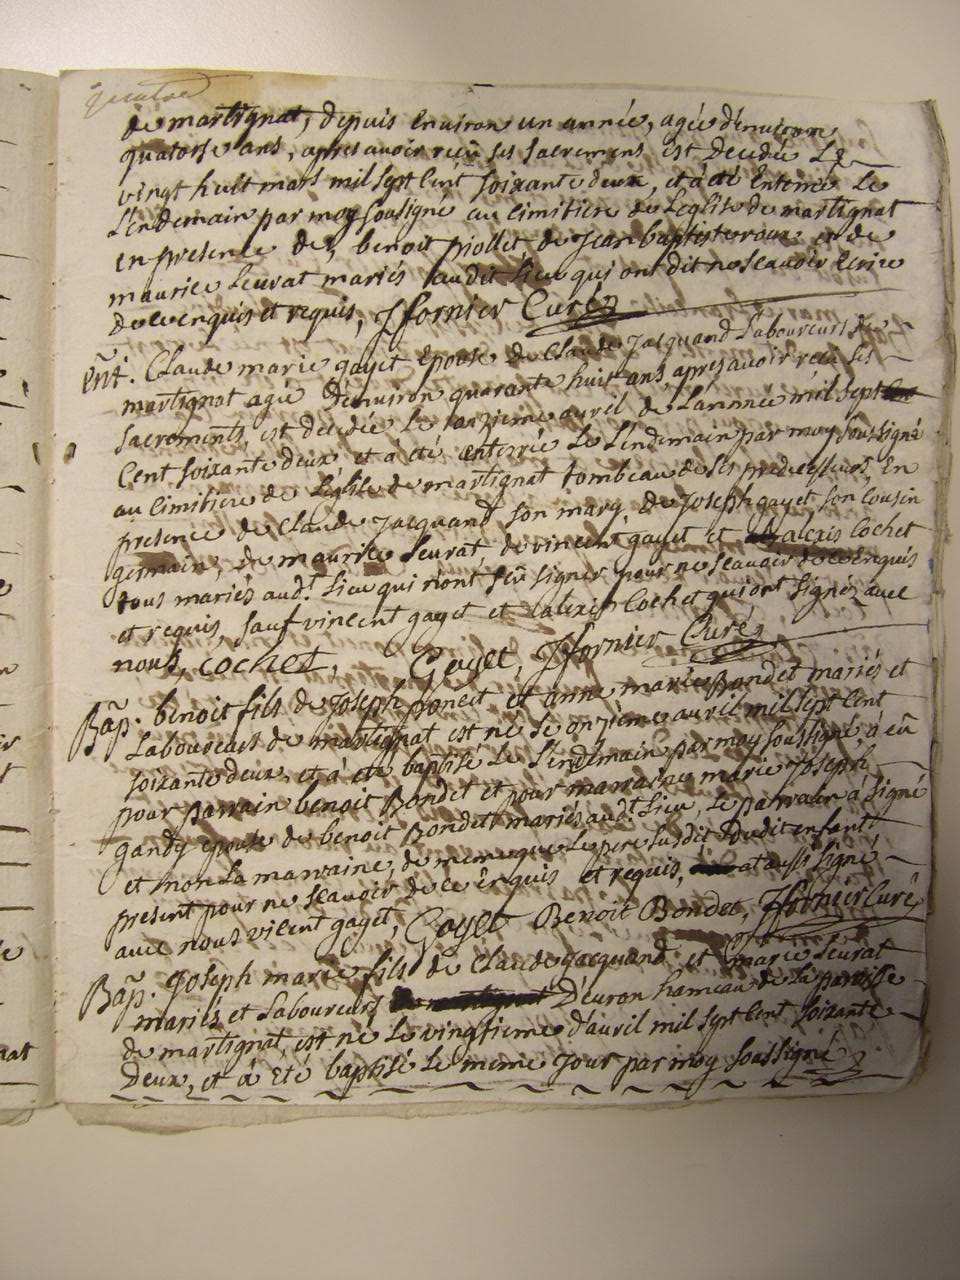 quatre
de martignat, depuis Environ un année, ageé d'environ
quatorse ans, apres avoir reçu ses sacremens est decedeé Le
vingt huit mars mil sept Cent soixante deux, et à été Enterreé Le
L'endemain par moy soussigné au Cimitiere de L'eglise de martignat
en presence de, benoit piollet de Jean baptiste roux et de
maurice Leurat mariés audit Lieu qui ont dit ne scavoir Ecrire
de ce enquis et requis, Jfornier Curé
Ent. Claude marie gayet epouse de Claude Jacquand Laboureurs de
martignat ageé D'environ quarante huit ans, apres avoir reçu ses
sacrements, est decedeé Le onzieme avril de L'anneé mil sept
Cent soixante deux et à été enterreé Le L'endemain par moy soussigné
au Cimitiere de L'église de martignat tombeau de ses predecesseurs, En
presence de Claude Jacquand son mary, de Joseph gayet son Cousin
germain, de maurice Leurat de vincent gayet et alexis Cochet
tous mariés aud.t Lieu qui n'ont sçû signer pour ne scavoir de ce Enquis
et requis, sauf vincent gayet et alexis Cochet qui ont signés avec
nous, cochet, Gayet, Jfornier Curé
Bap. benoit fils de Joseph poncet et anne marie Bondet mariés et
Laboureurs de martignat est né Le onzieme avril mil sept Cent
soixante deux, et à été baptisé Le L'endemain par moy soussigné, à eû
pour parrain benoit Bondet et pour marraine marie Joseph
gandy epouse de benoit Bondet mariés aud.t Lieu, Le parrain à signé
et non La marraine, de meme que Le pere susdit dudit enfant
present pour ne scavoir de ce enquis et requis, at aussi signé
avec nous vicent gayet, Gayet Benoit Bondet, Jfornier Curé
Bap. Joseph marie fils de Claude Jacquand et marie Leurat
mariés et Laboureurs D'evron hameau de La paroisse
de martignat, est né Le vingtieme d'avril mil sept Cent soixante
Deux, et à été baptisé Le meme Jour par moy soussigné